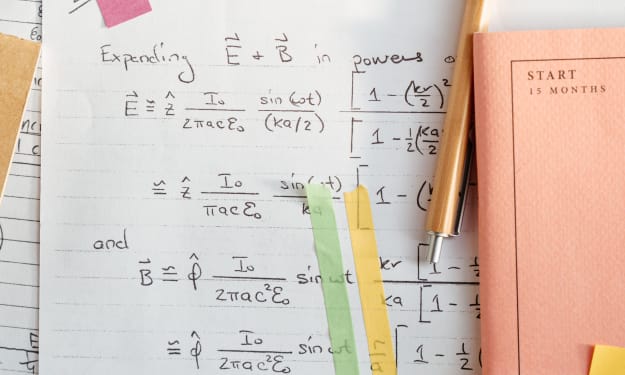 Expanding E⃗ + B⃗ in powers o
E⃗ ≅ ẑ I₀/(2πacε₀) sin(ωt)/(ka/2) [1 - (kr/2)² / [1 - ½(ka/2)
≅ ẑ I₀/(πacε₀) sin(ωt)/ka [1 - (
and
B⃗ ≅ φ̂ I₀/(2πac²ε₀) sin ωt kr/ka [1 - ½ / [1 - ½
≅ φ̂ I₀/(2πac²ε₀) sin ωt [1 - ½(
START
15 MONTHS